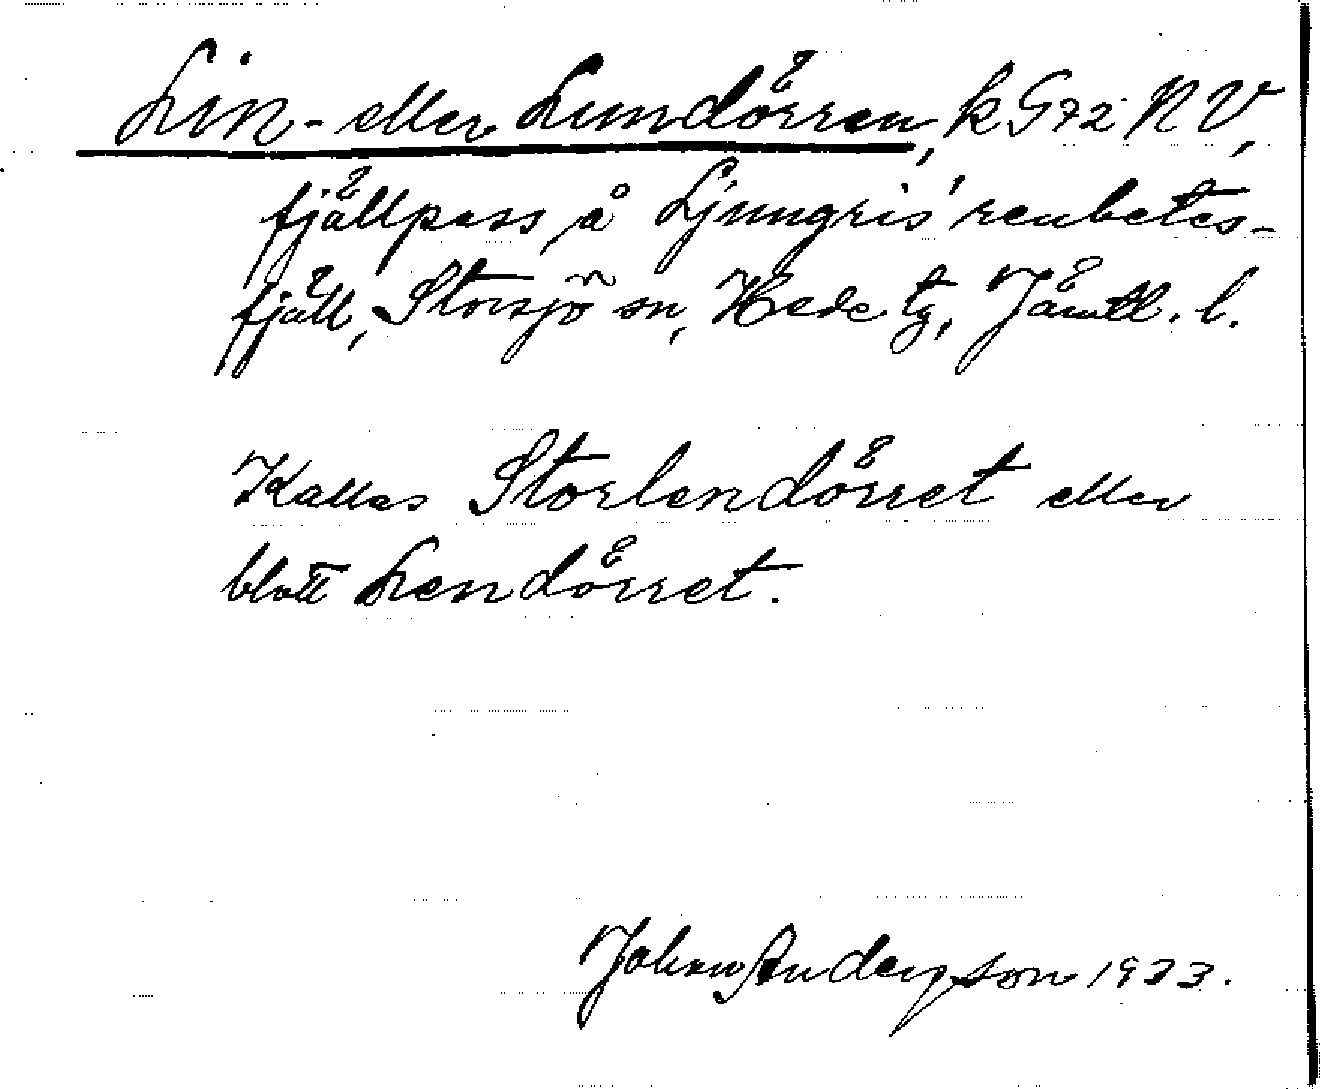 Lin- eller Lundörren, k G72 NV,
fjällpass å Ljungris' renbetes-
fjäll, Storsjö sn, Hede tg, Jämtl. l.
Kallas Storlendörret eller
blott Lendörret.
Johan Andersson 1933.